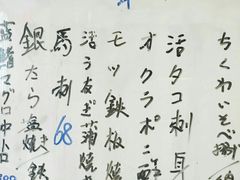 ちくわいそべ揚
活タコ刺 耳
オクラポン酢
モツ鉄板焼
活うなぎ蒲焼
馬刺 68
銀たら塩焼 鉄
マグロ中トロ